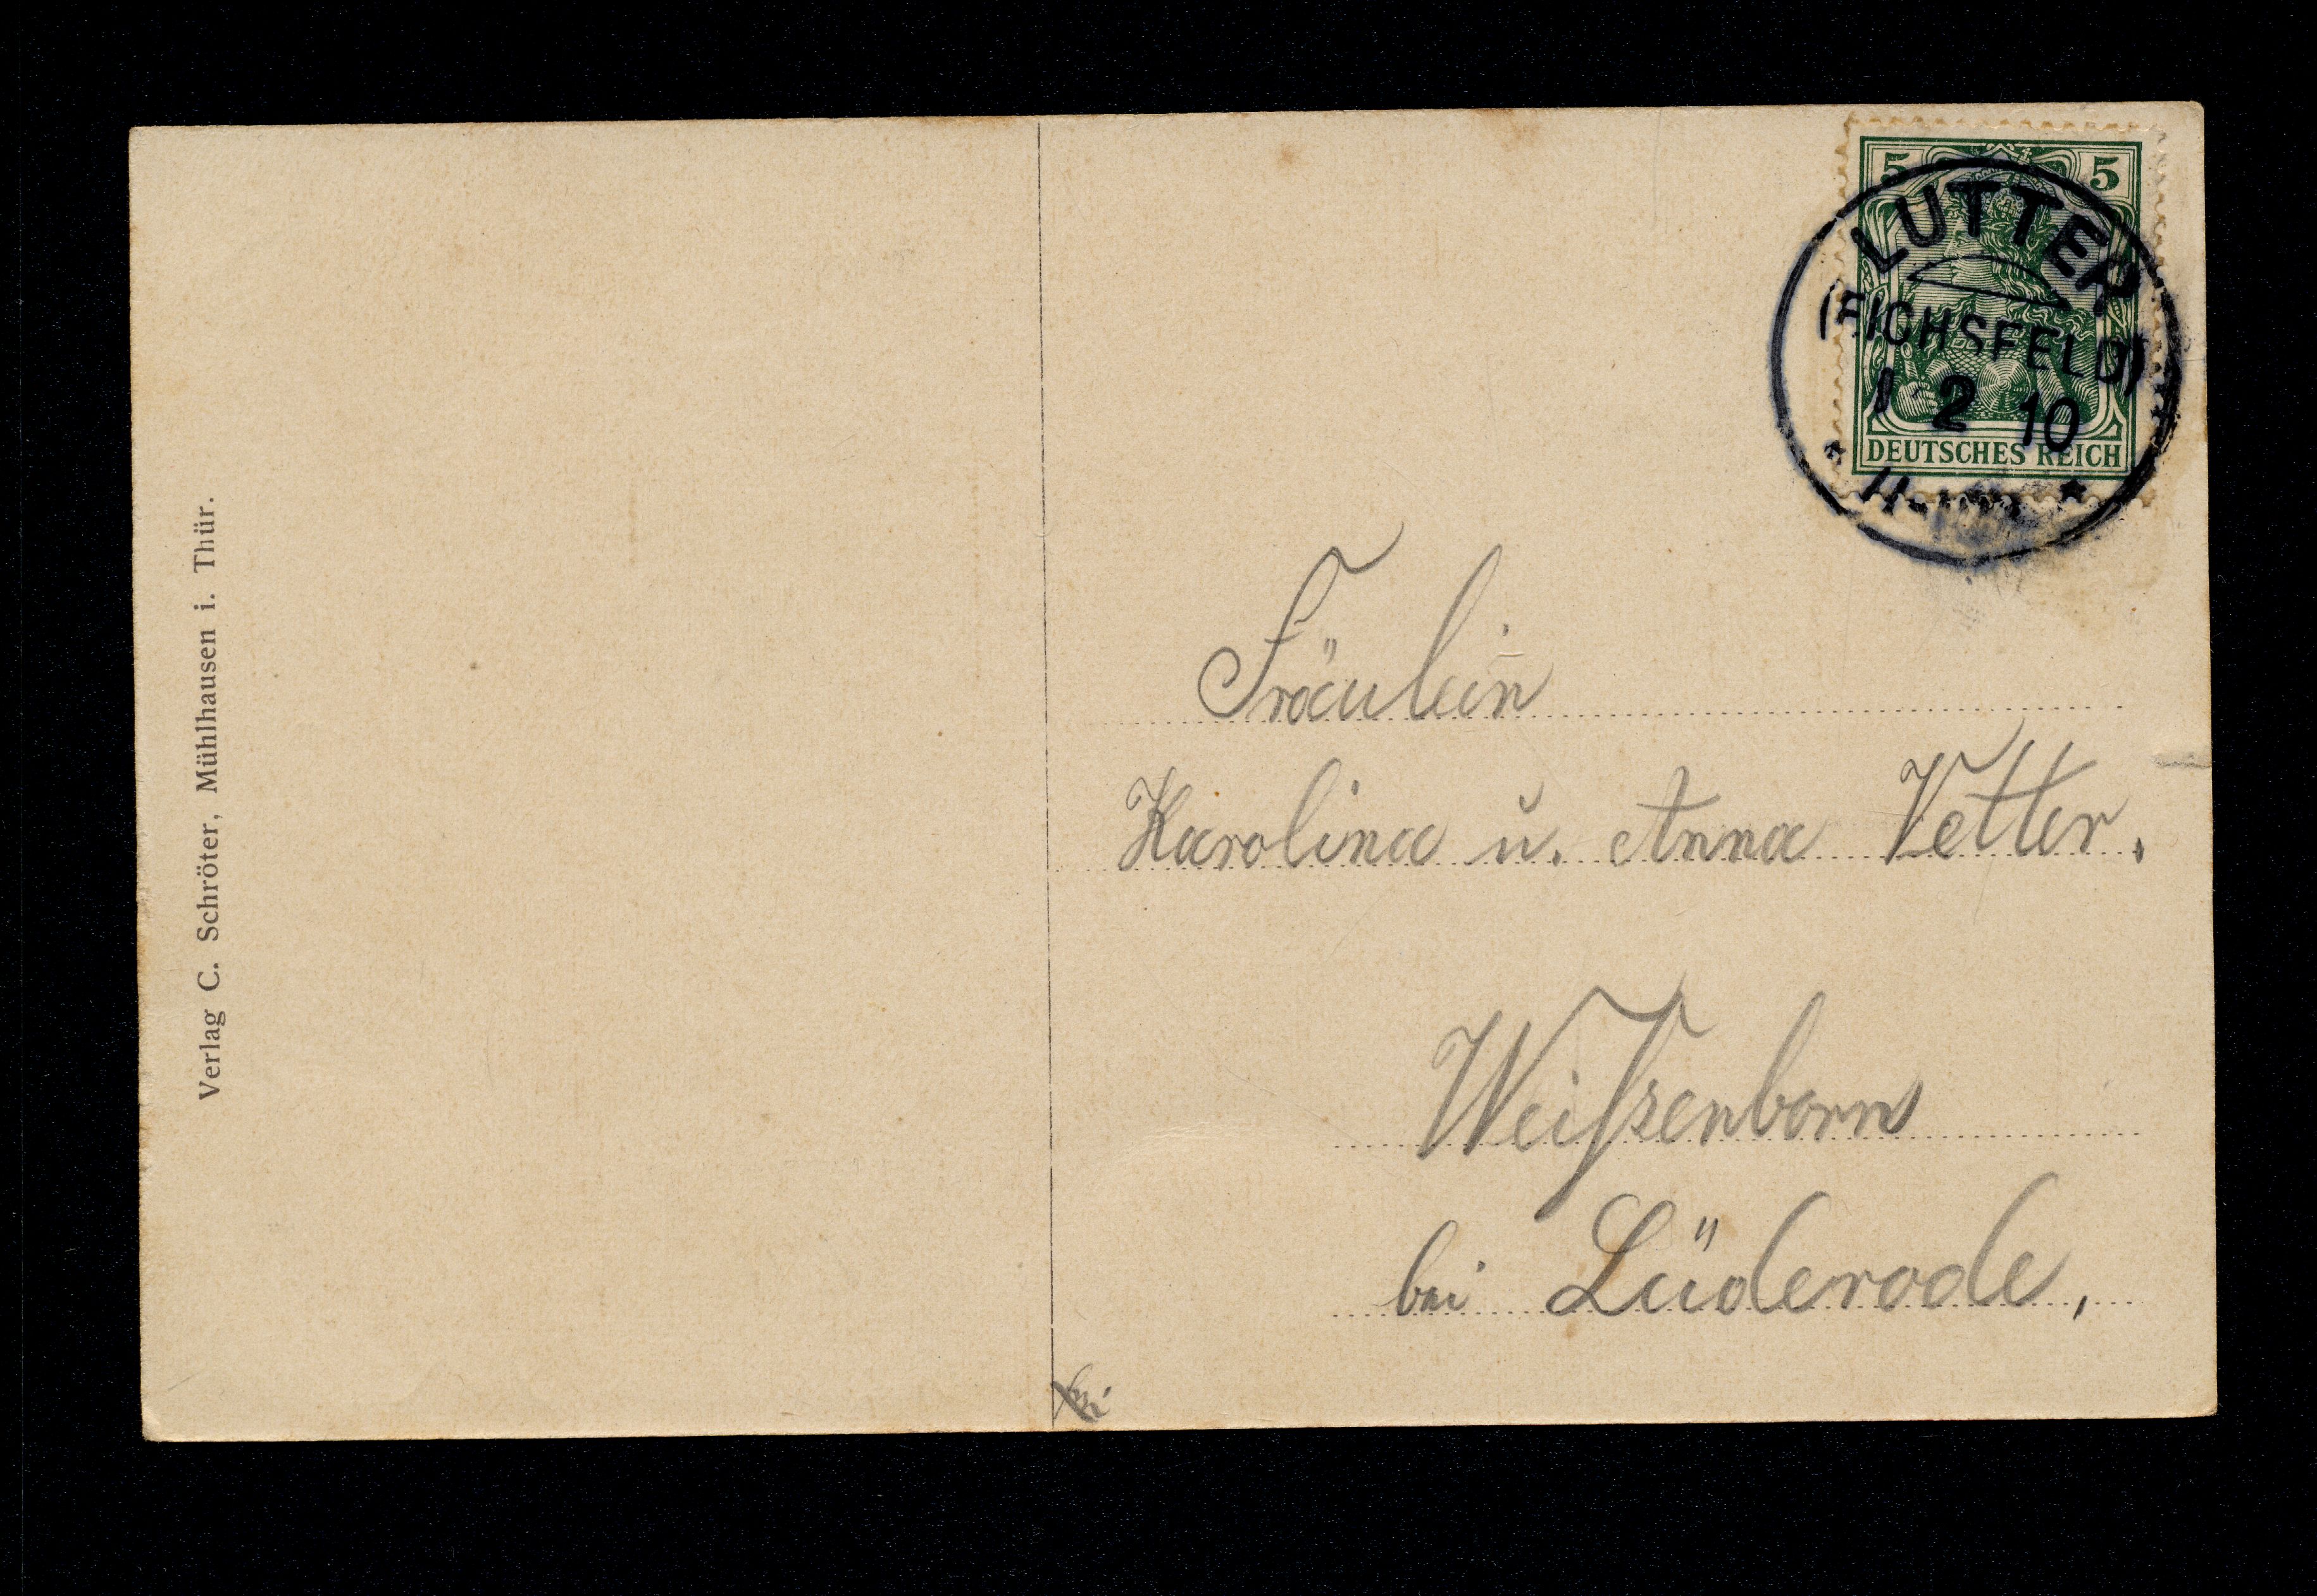 5 5
LUTTER
(EICHSFELD)
1 2 10
DEUTSCHES REICH
Verlag C. Schröter, Mühlhausen i. Thür.
Fräulein
Karolina u. Anna Vetter.
Weißenborn
bei Lüderode,